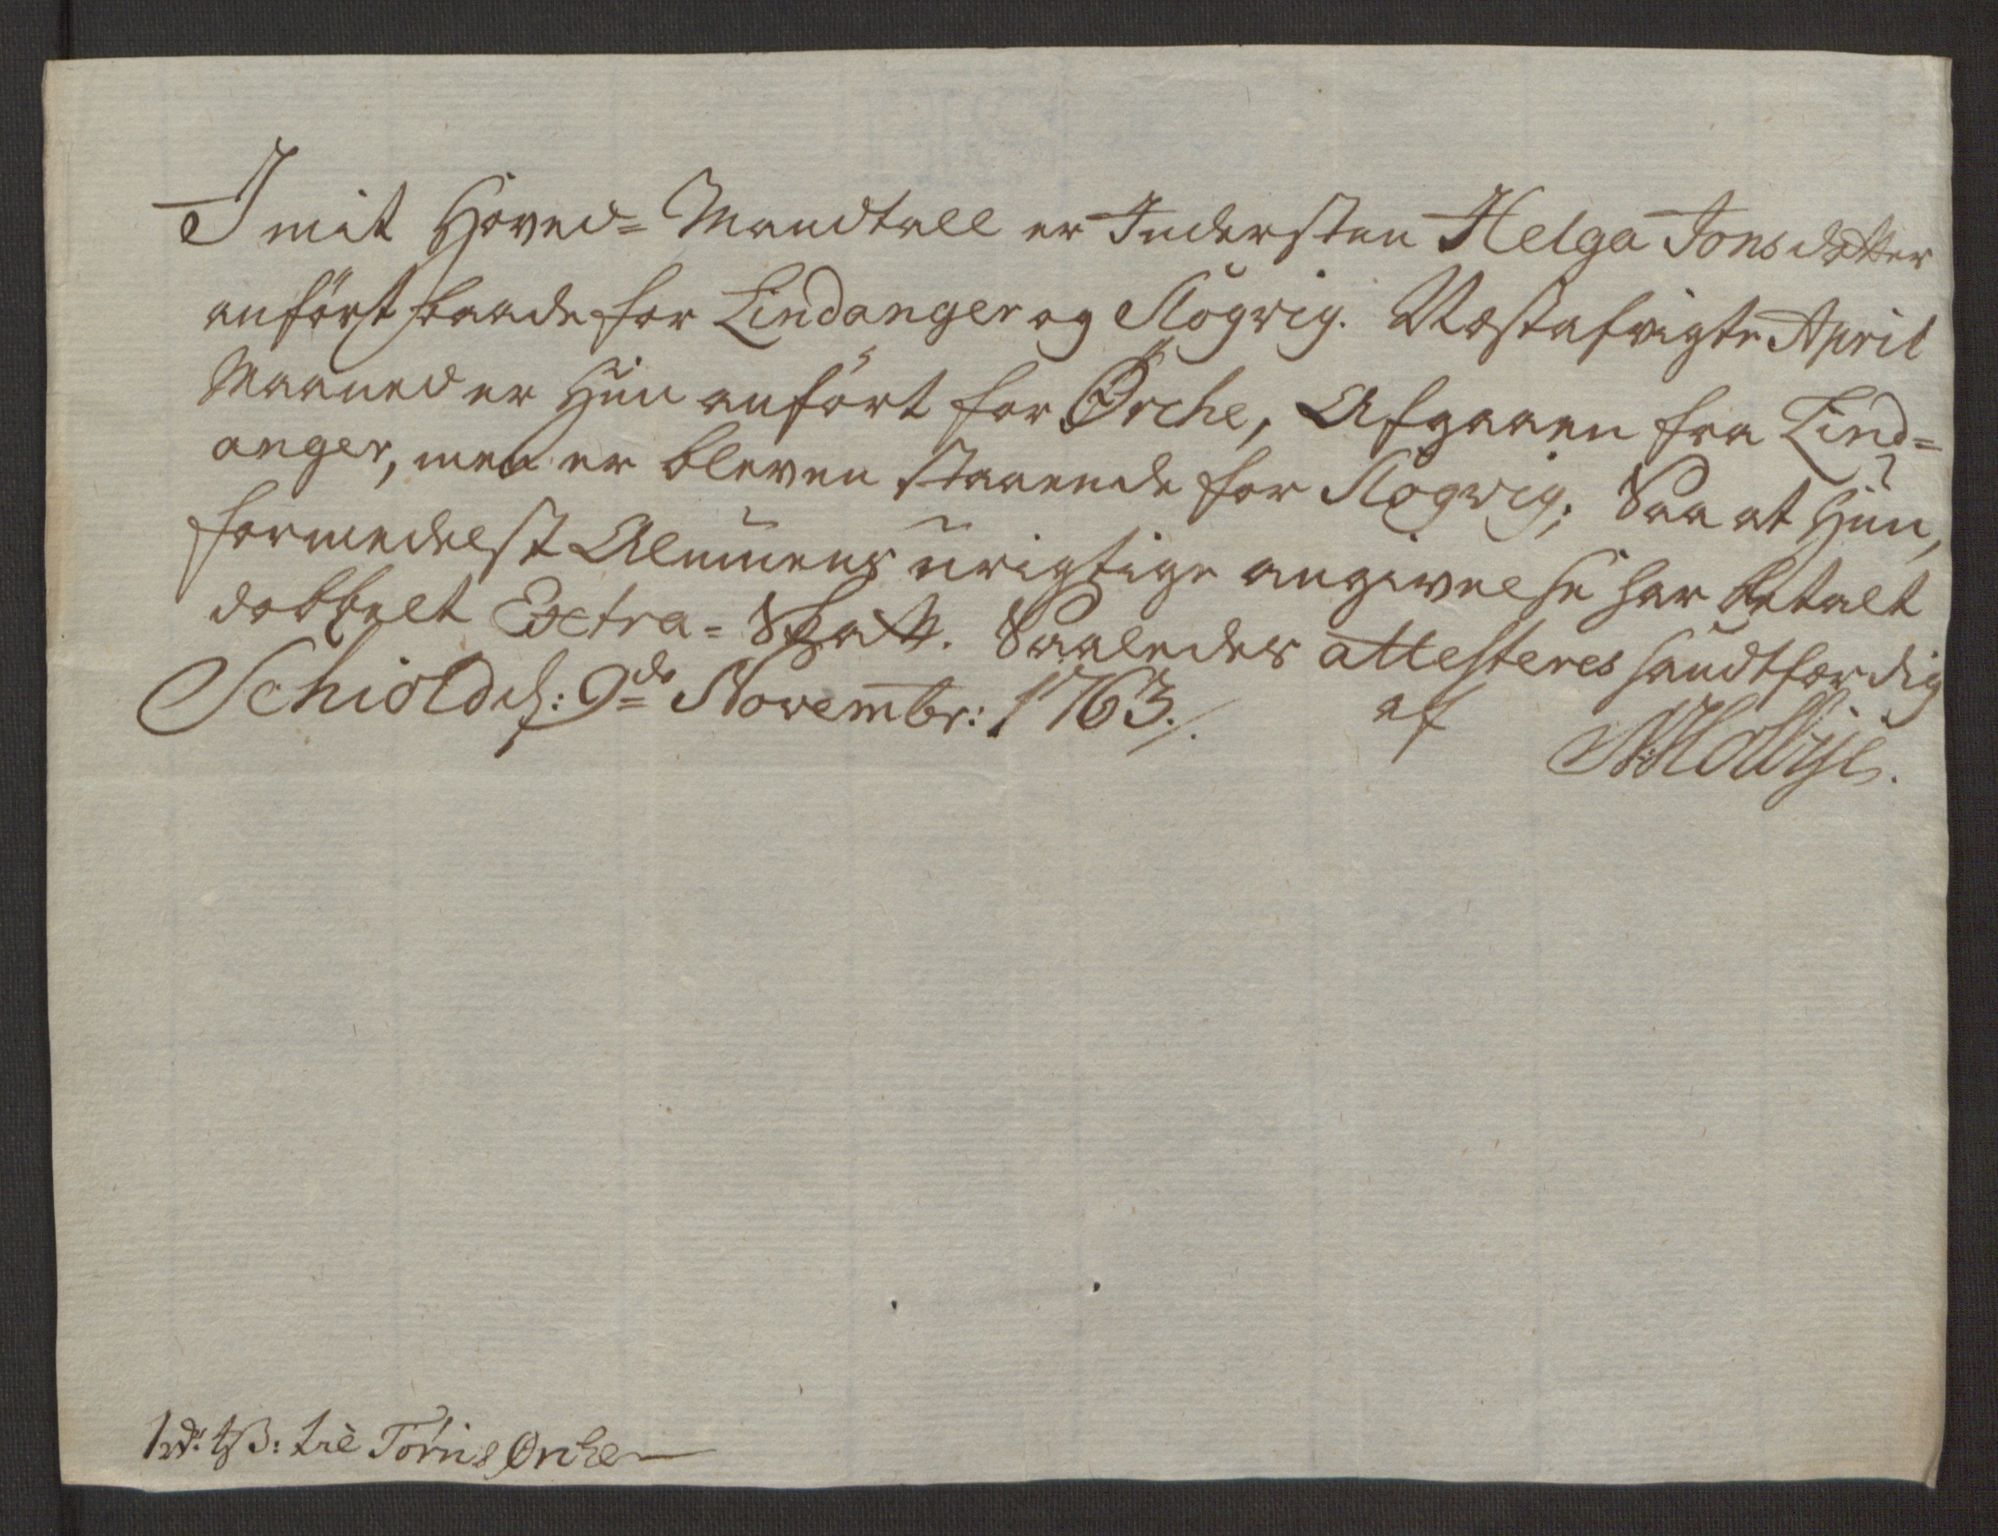 I mit Hoved= Mandtall er Indersten Helga Jonsdatter
anført baade for Lindanger og Slógvig. Næstafvigte April
Maaned er Hun anført for Ørche, Afgaaen fra Lind=
anger, men er bleven staaende for Slógvig; Saa at Hun,
formedelst Almuens urigtige angivelse har betalt
dobbelt Extra= Skatt. Saaledes attesteres sandfærdig
Schiold d: 9de Novembr: 1763./. af
1 rd. 4 ß: til Ørche